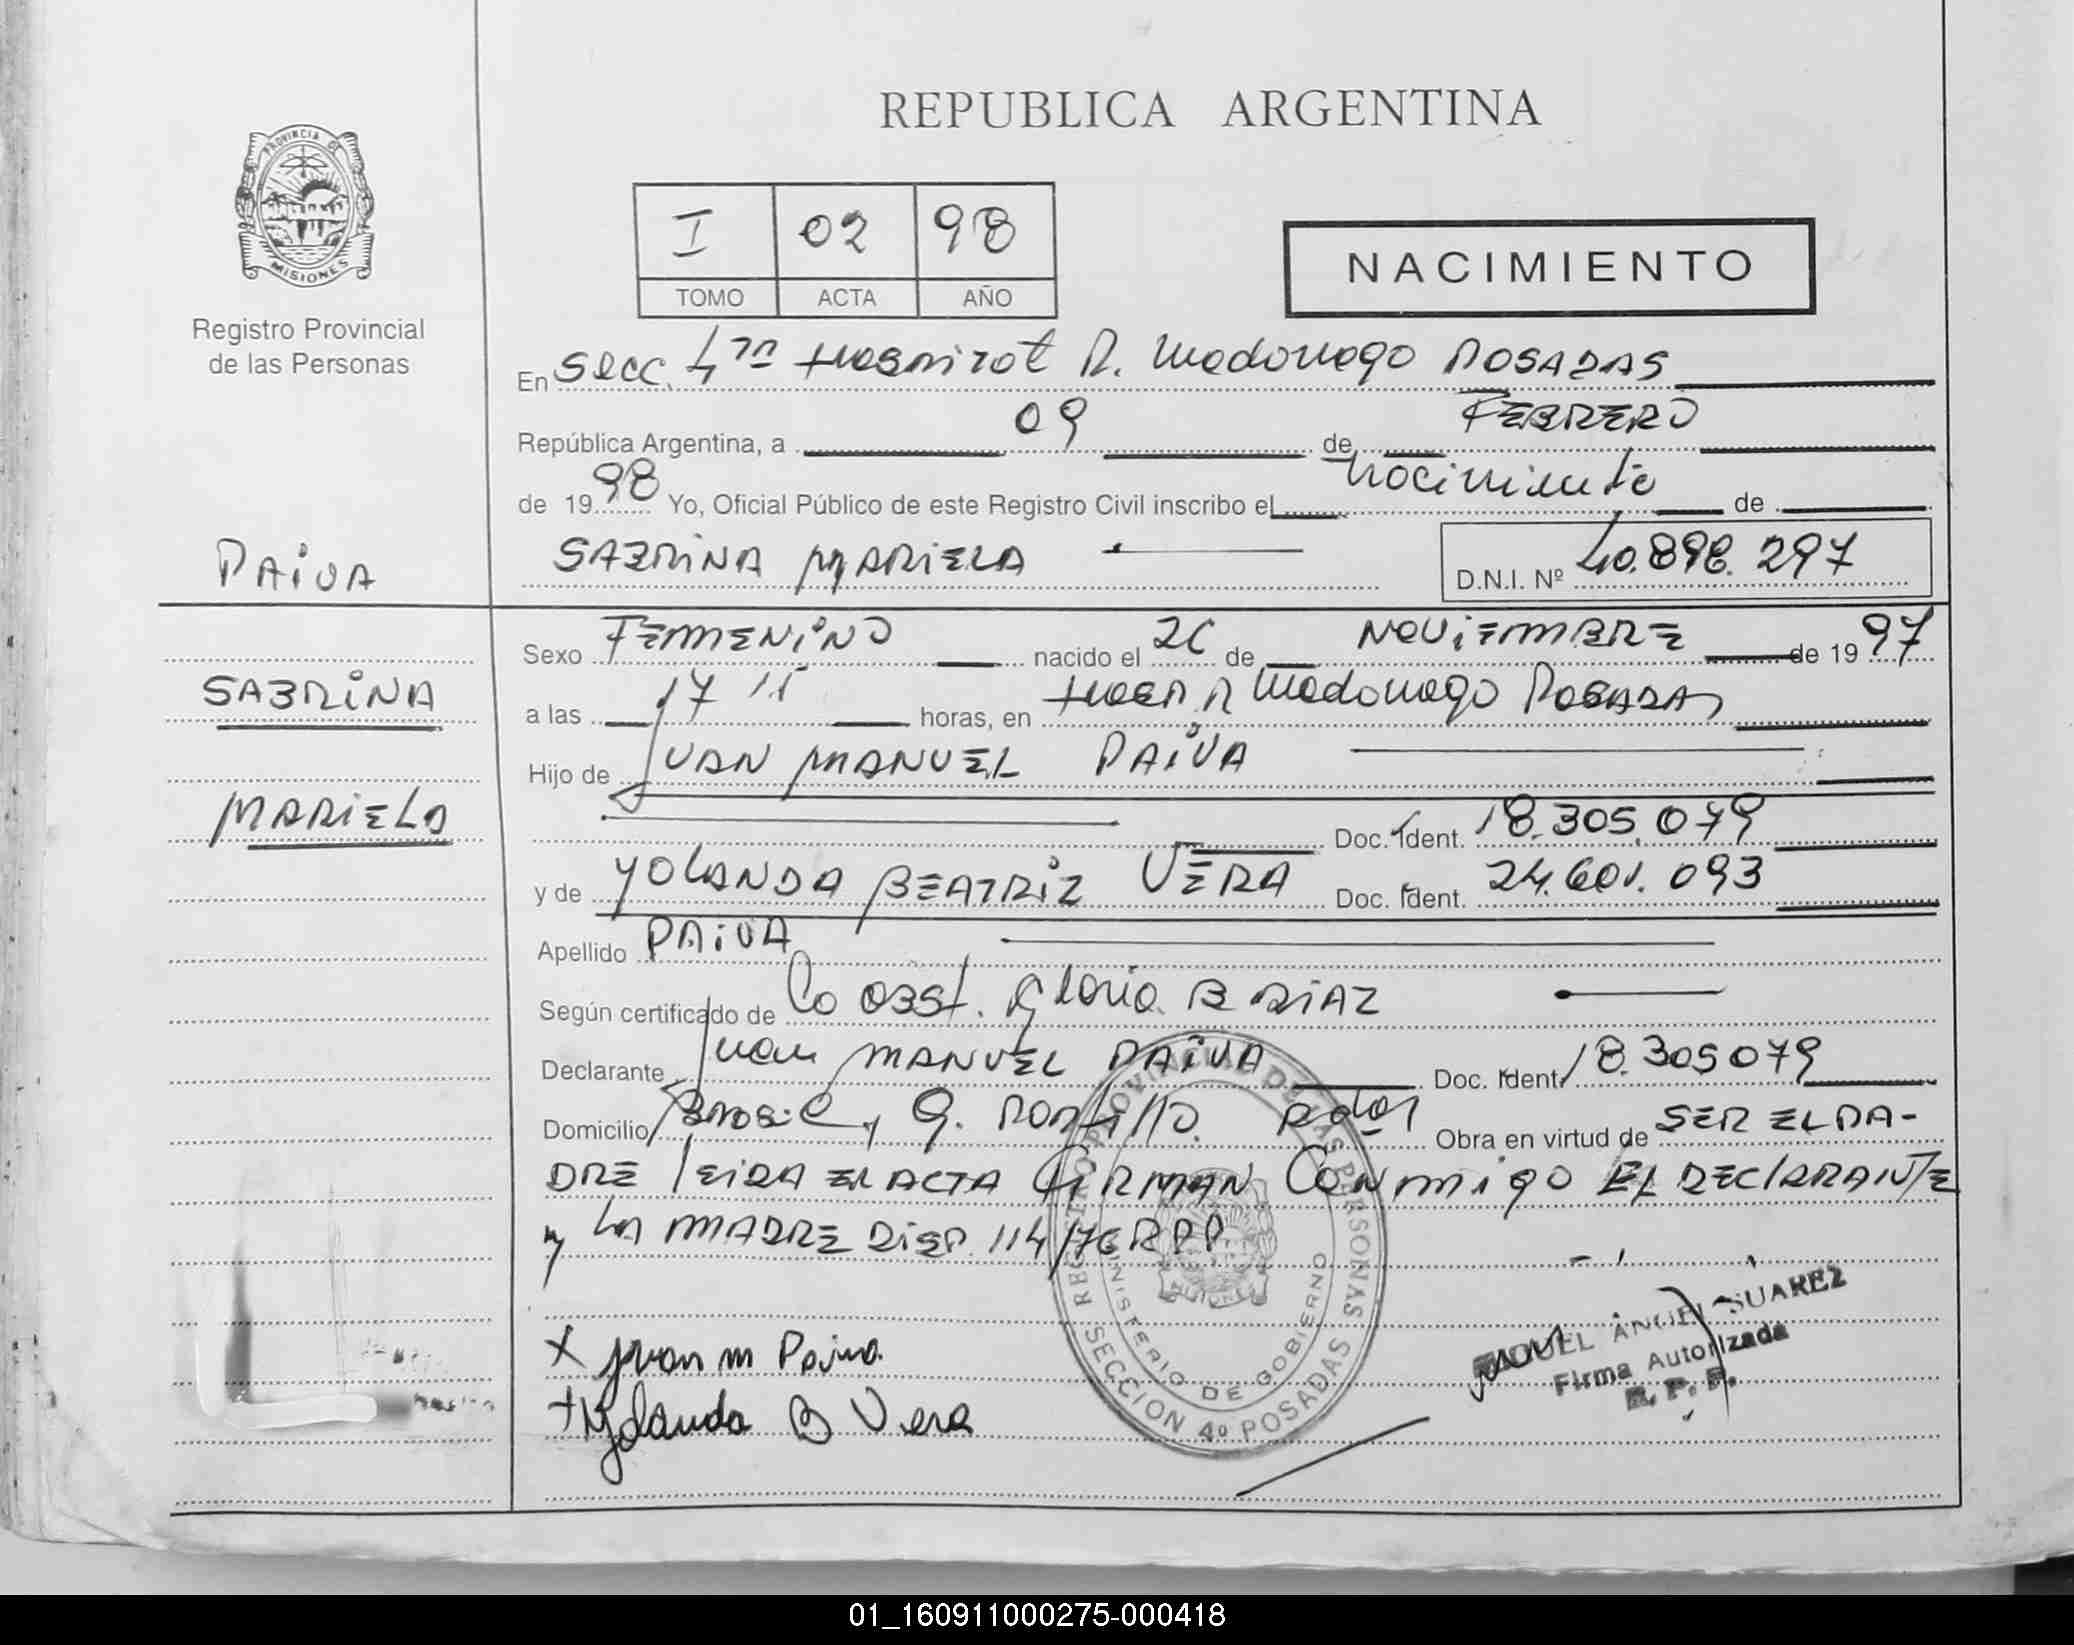 REPUBLICA ARGENTINA
PROVINCIA DE
MISIONES
Registro Provincial
de las Personas
I 02 98
TOMO ACTA AÑO
NACIMIENTO
En Secc. 4ta Hospital R. Madariaga POSADAS
República Argentina, a 09 de FEBRERO
de 1998 Yo, Oficial Público de este Registro Civil inscribo el nacimiento de
PAIVA
SABRINA MARIELA D.N.I. Nº 40.898.297
Sexo FEMENINO nacido el 26 de NOVIEMBRE de 1997
SABRINA
a las 17 15 horas, en Hosp R Madariaga POSADAS
Hijo de JUAN MANUEL PAIVA
MARIELA
Doc. Ident. 18.305.079
y de YOLANDA BEATRIZ VERA Doc. Ident. 24.601.093
Apellido PAIVA
Según certificado de La OBST. Gloria B DIAZ
Declarante Juan MANUEL PAIVA Doc. Ident 18.305079
Domicilio G. PORTILLO. Pdas Obra en virtud de SER EL PA-
DRE leida EL ACTA FIRMAN CONMIGO EL DECLARANTE
y LA MADRE DISP. 114/76 RPP
X Juan M Paiva.
+ Yolanda B Vera
REGISTRO PROVINCIAL DE LAS PERSONAS
MINISTERIO DE GOBIERNO
SECCION 4º POSADAS
MIGUEL ANGEL SUAREZ
Firma Autorizada
R. P. P.
01_160911000275-000418